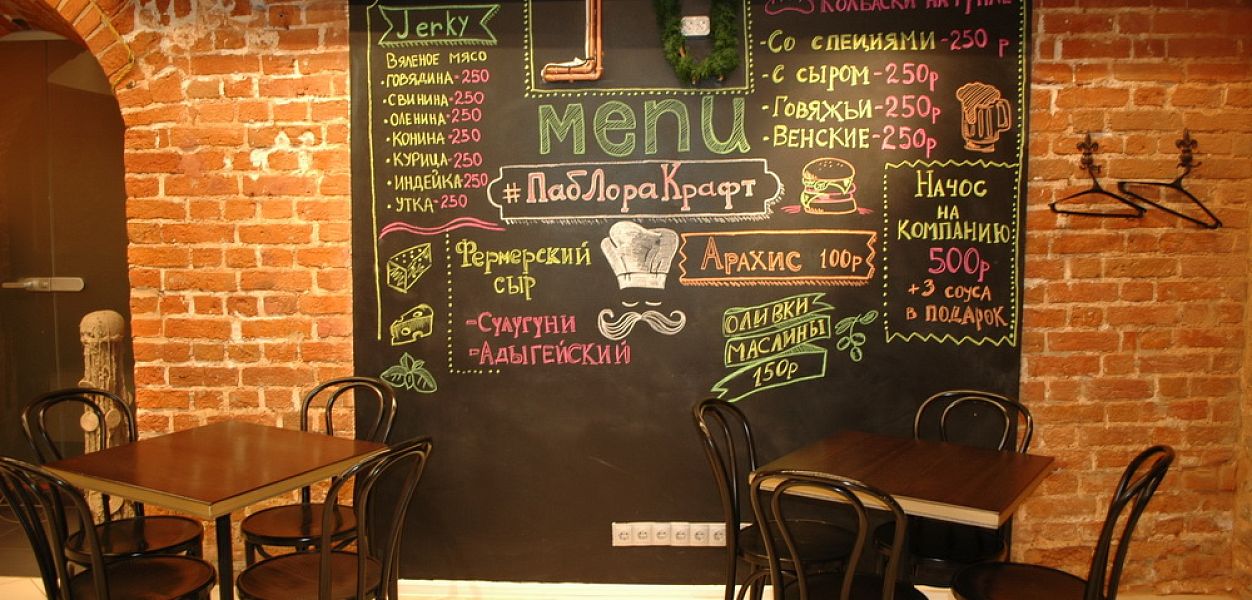 Jerky
Вяленое мясо
·говядина-250
·свинина-250
·оленина-250
·конина-250
·курица-250
·индейка-250
·утка-250
Фермерский
сыр
-Сулугуни
-Адыгейский
menu
#ПабЛораКрафт
Арахис 100р
оливки
маслины
150р
Колбаски на гриле
·Со специями-250 р
·с сыром-250р
·Говяжьи-250р
·Венские-250р
Начос
на
компанию
500р
+3 соуса
в подарок